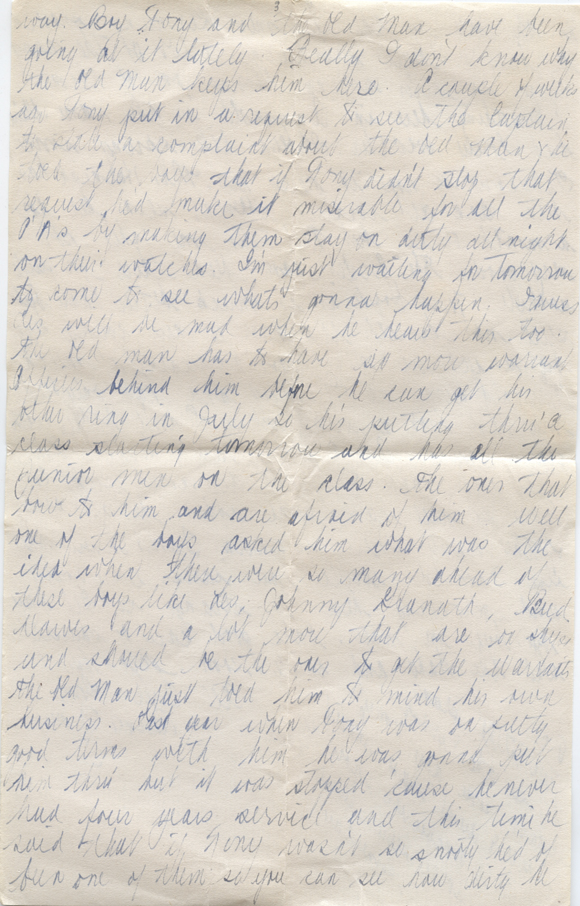 3
way. Boy Tony and the Old Man have been
going at it lately. Really I don't know why
the Old Man keeps him here. A couple of weeks
ago Tony put in a request to see the Captain
to state a complaint about the Old Man & he
told the boys that if Tony didn't stop that
request he'd make it miserable for all the
by making them stay on duty all night
on their watches. I'm just waiting for tomorrow
to come to see whats gonna happen. I guess
will be mad when he hears this too.
The Old man has to have so more warrant
behind him before he can get his
other ring in July so his putting thru' a
class starting tomorrow and has all the
junior men on the class. The ones that
bow to him and are afraid of him well
one of the boys asked him what was the
idea when there were so many ahead of
these boys like Les, Johnny Granath, Bud
and a lot more that are on ships
and should be the ones to get the warrants
The Old Man just told him to mind his own
business. Last year when Tony was on pretty
good terms with him he was gonna put
him thru' but it was stopped 'cause he never
had four years service and this time he
said that if Tony wasn't so snooty he'd of
been one of them so you can see how dirty he